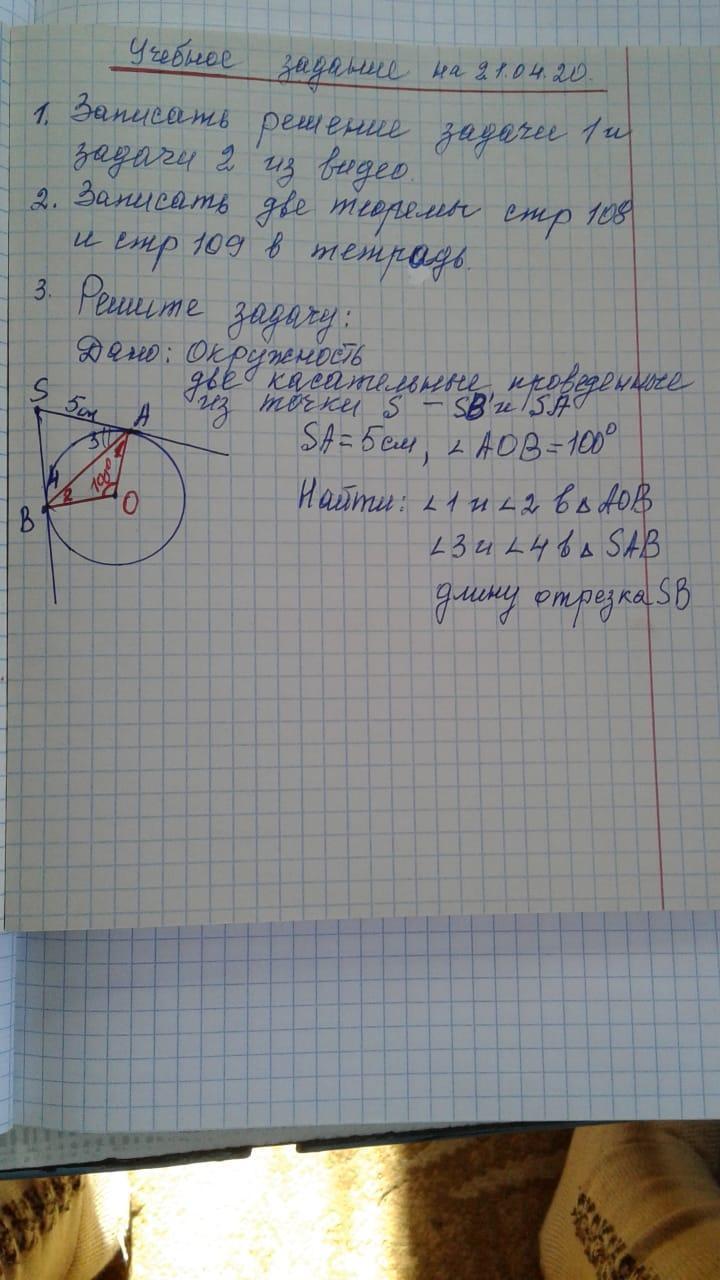 Учебное задание на 21.04.20.
1. Записать решение задачи 1 и
задачи 2 из видео.
2. Записать две теоремы стр 108
и стр 109 в тетрадь.
3. Решите задачу:
Дано: Окружность
две касательные проведенные
из точки S – SB и SA
SA = 5см, ∠AOB = 100°
Найти: ∠1 и ∠2 в △ AOB
∠3 и ∠4 в △ SAB
длину отрезка SB
S
5см
A
3
1
4
100°
2
O
B